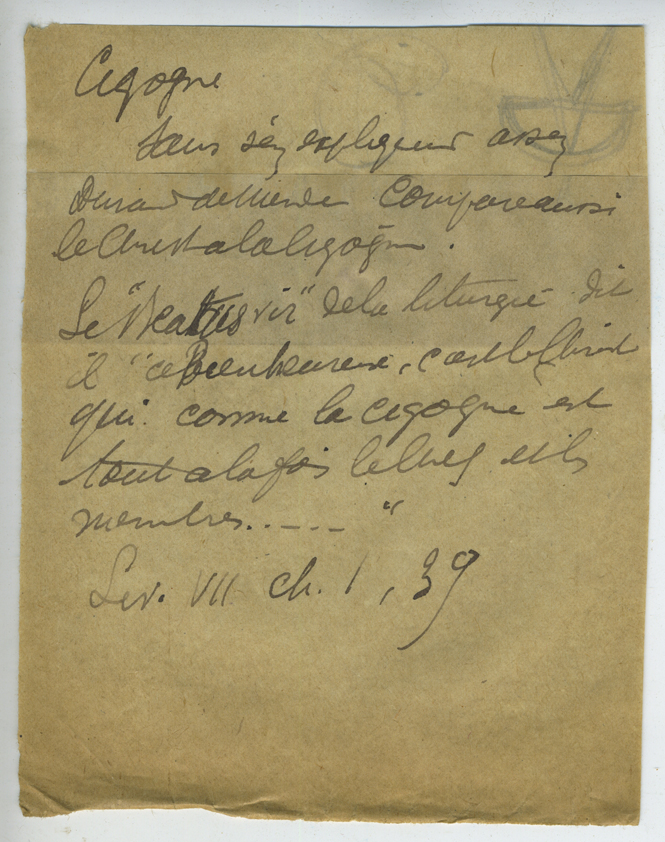 Cigogne
sans s'en expliquer assez
Durand de Mende compare aussi
le Christ à la cigogne.
Le "Beatus vir" de la liturgie dit
il "ce Bienheureux, c'est le Christ
qui comme la cigogne est
tout à la fois le chef et les
membres..... "
Liv. VII ch. 1, 39